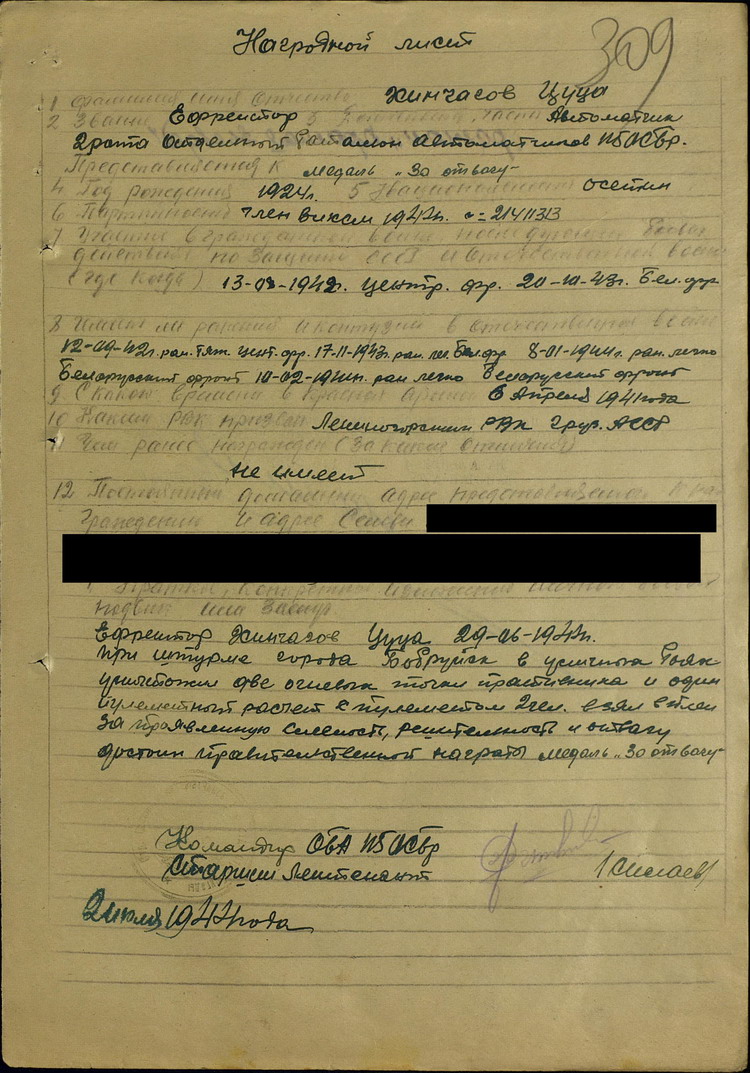 Наградной лист
309
1 Фамилия имя отчество Хинчасов Цуца
2 Звание Ефрейтор 3 Автоматчик
2 рота Отдельный баталион автоматчиков
Представляется к медаль „За отвагу"
4 Год рождения 1924г. 5 Национальность осетин
6 Партийность член ВЛКСМ 1942г. 21411313
7 Участие в гражданской войне последующих боевых
действиях по защите СССР и отечественной войне
(где когда) 13-08-1942г. Центр. фр. 20-10-43г. Бел. фр
8 Имеет ли ранения и контузии в отечественной войне
12-09-42г. ран. тяж. цент. фр. 17-11-1943г. ран. лег. Бел. фр 8-01-1944г. ран. легко
Белорусский фронт 10-02-1944г. ран легко Белорусский фронт
9 С какого времени в Красной Армии 6 Апреля 1941 года
10 Каким РВК призван Лениногорским РВК Груз. АССР
11 Чем ранее награжден (за какие отличия)
не имеет
12 Постоянный домашний адрес представляемого к на
граждению и адрес семьи
Краткое, конкретное изложение личного боевого
подвига или заслуг.
Ефрейтор Хинчасов Цуца 29-06-1944г.
при штурме города Бобруйск в уличных боях
уничтожил две огневых точки праотивника и один
пулеметный расчет с пулеметом 2 чел. взял в плен
За проявленную смелость, решительность и отвагу
достоин правительственной награты медаль „За отвагу"
Командир ОБА
Старший Лейтенант /Силаев/
2 июля 1944 года